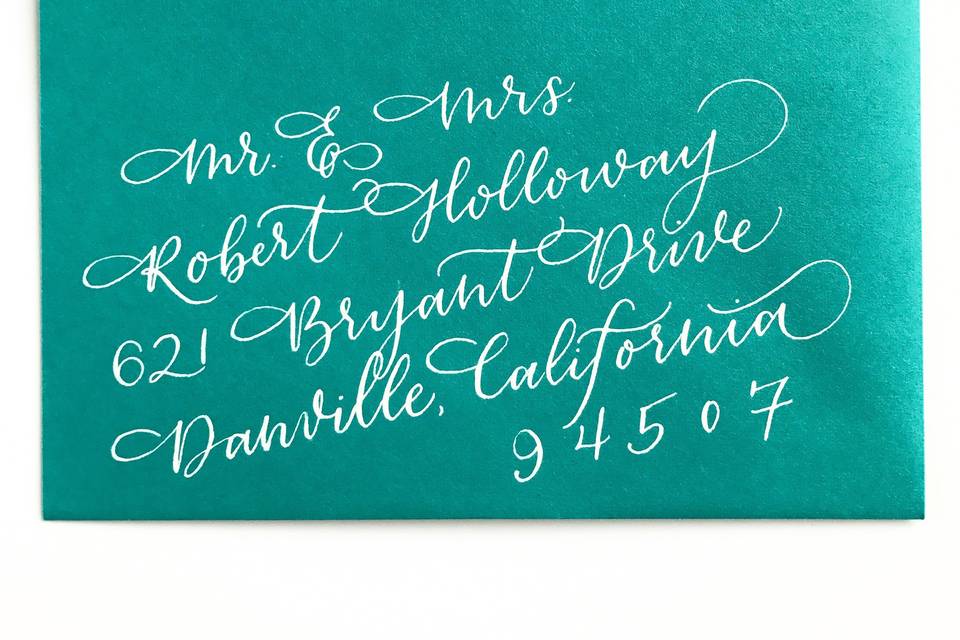 Mr. & Mrs.
Robert Holloway
621 Bryant Drive
Danville, California
94507